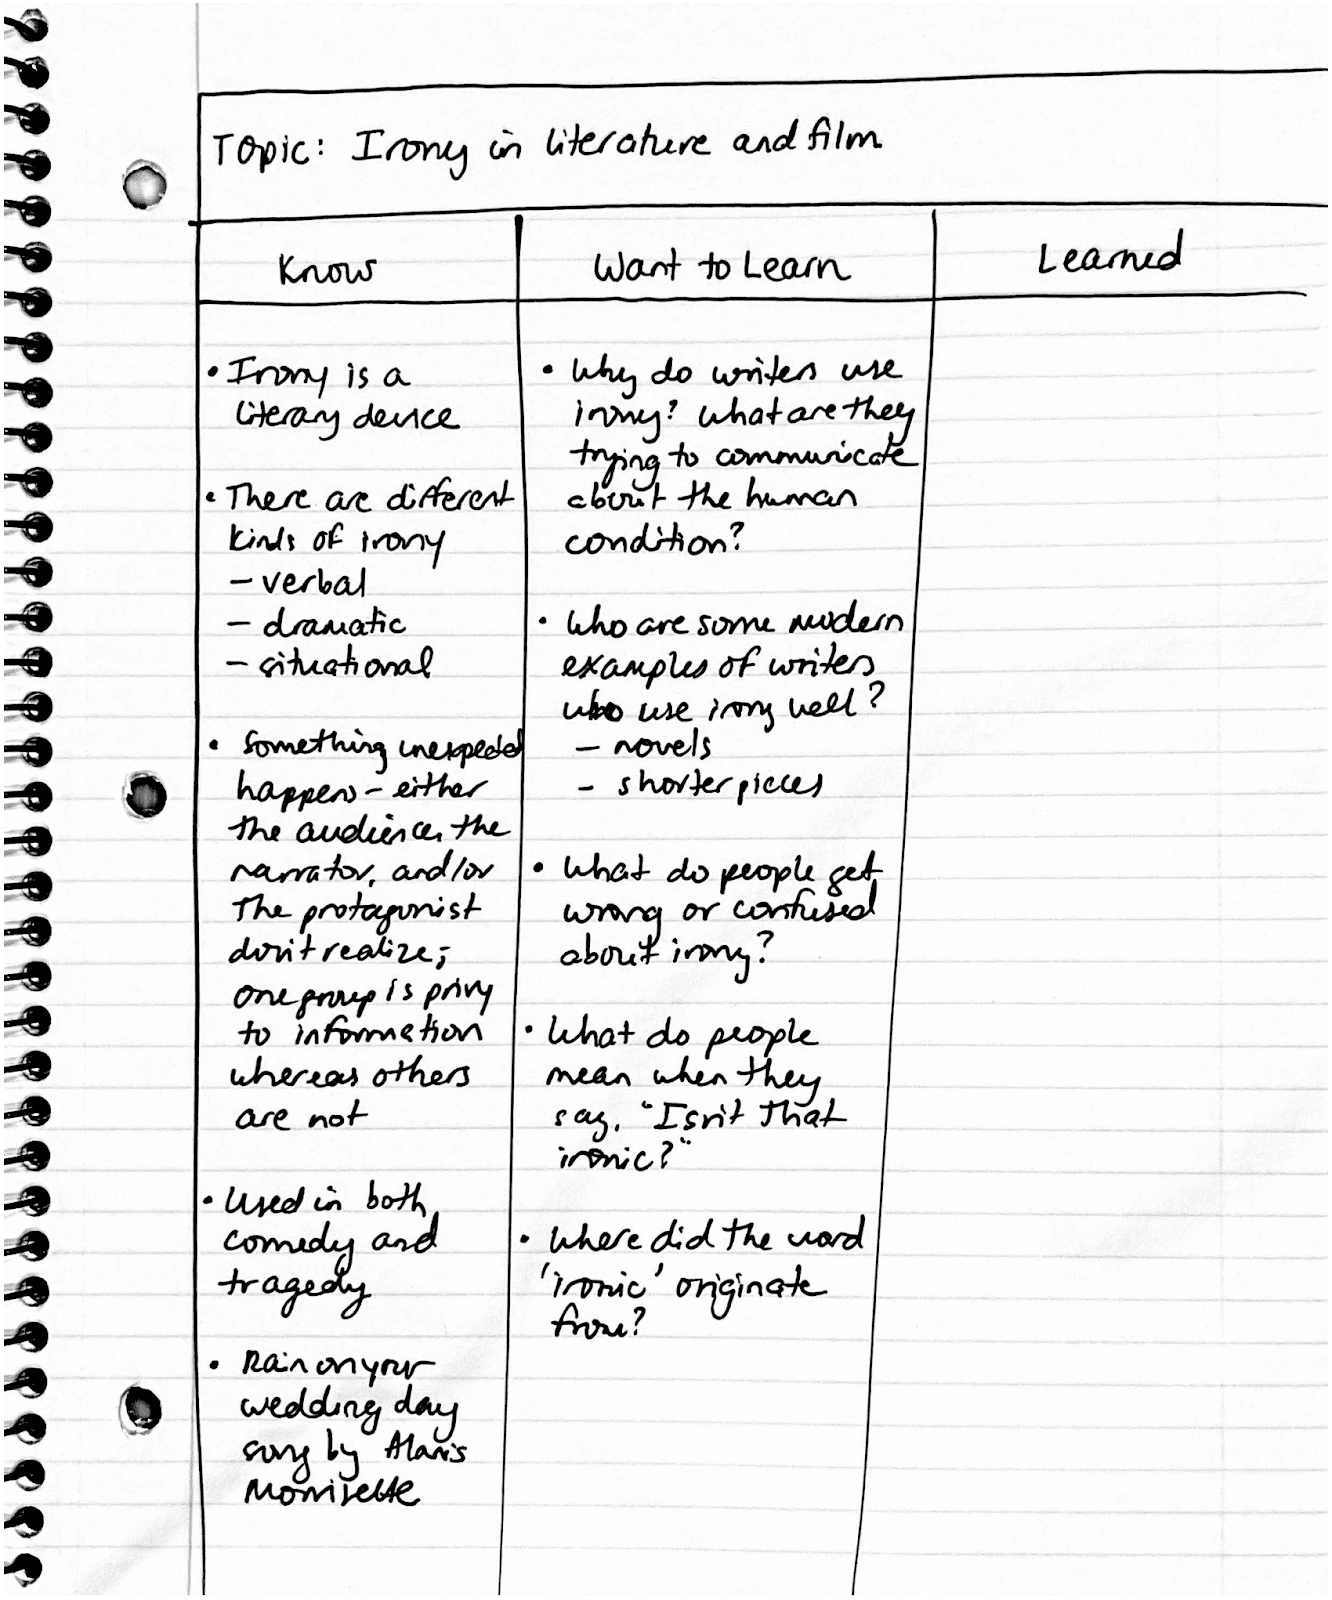 Topic: Irony in literature and film
Know
Want to Learn
Learned
• Irony is a
literary device
• There are different
kinds of irony
- verbal
- dramatic
- situational
• Something unexpected
happens - either
the audience, the
narrator, and/or
the protagonist
don't realize;
one group is privy
to information
whereas others
are not
• Used in both
comedy and
tragedy
• Rain on your
wedding day
song by Alanis
Morrisette
• Why do writers use
irony? What are they
trying to communicate
about the human
condition?
• Who are some modern
examples of writers
who use irony well?
- novels
- shorter pieces
• What do people get
wrong or confused
about irony?
• What do people
mean when they
say, "Isn't that
ironic?"
• Where did the word
'ironic' originate
from?